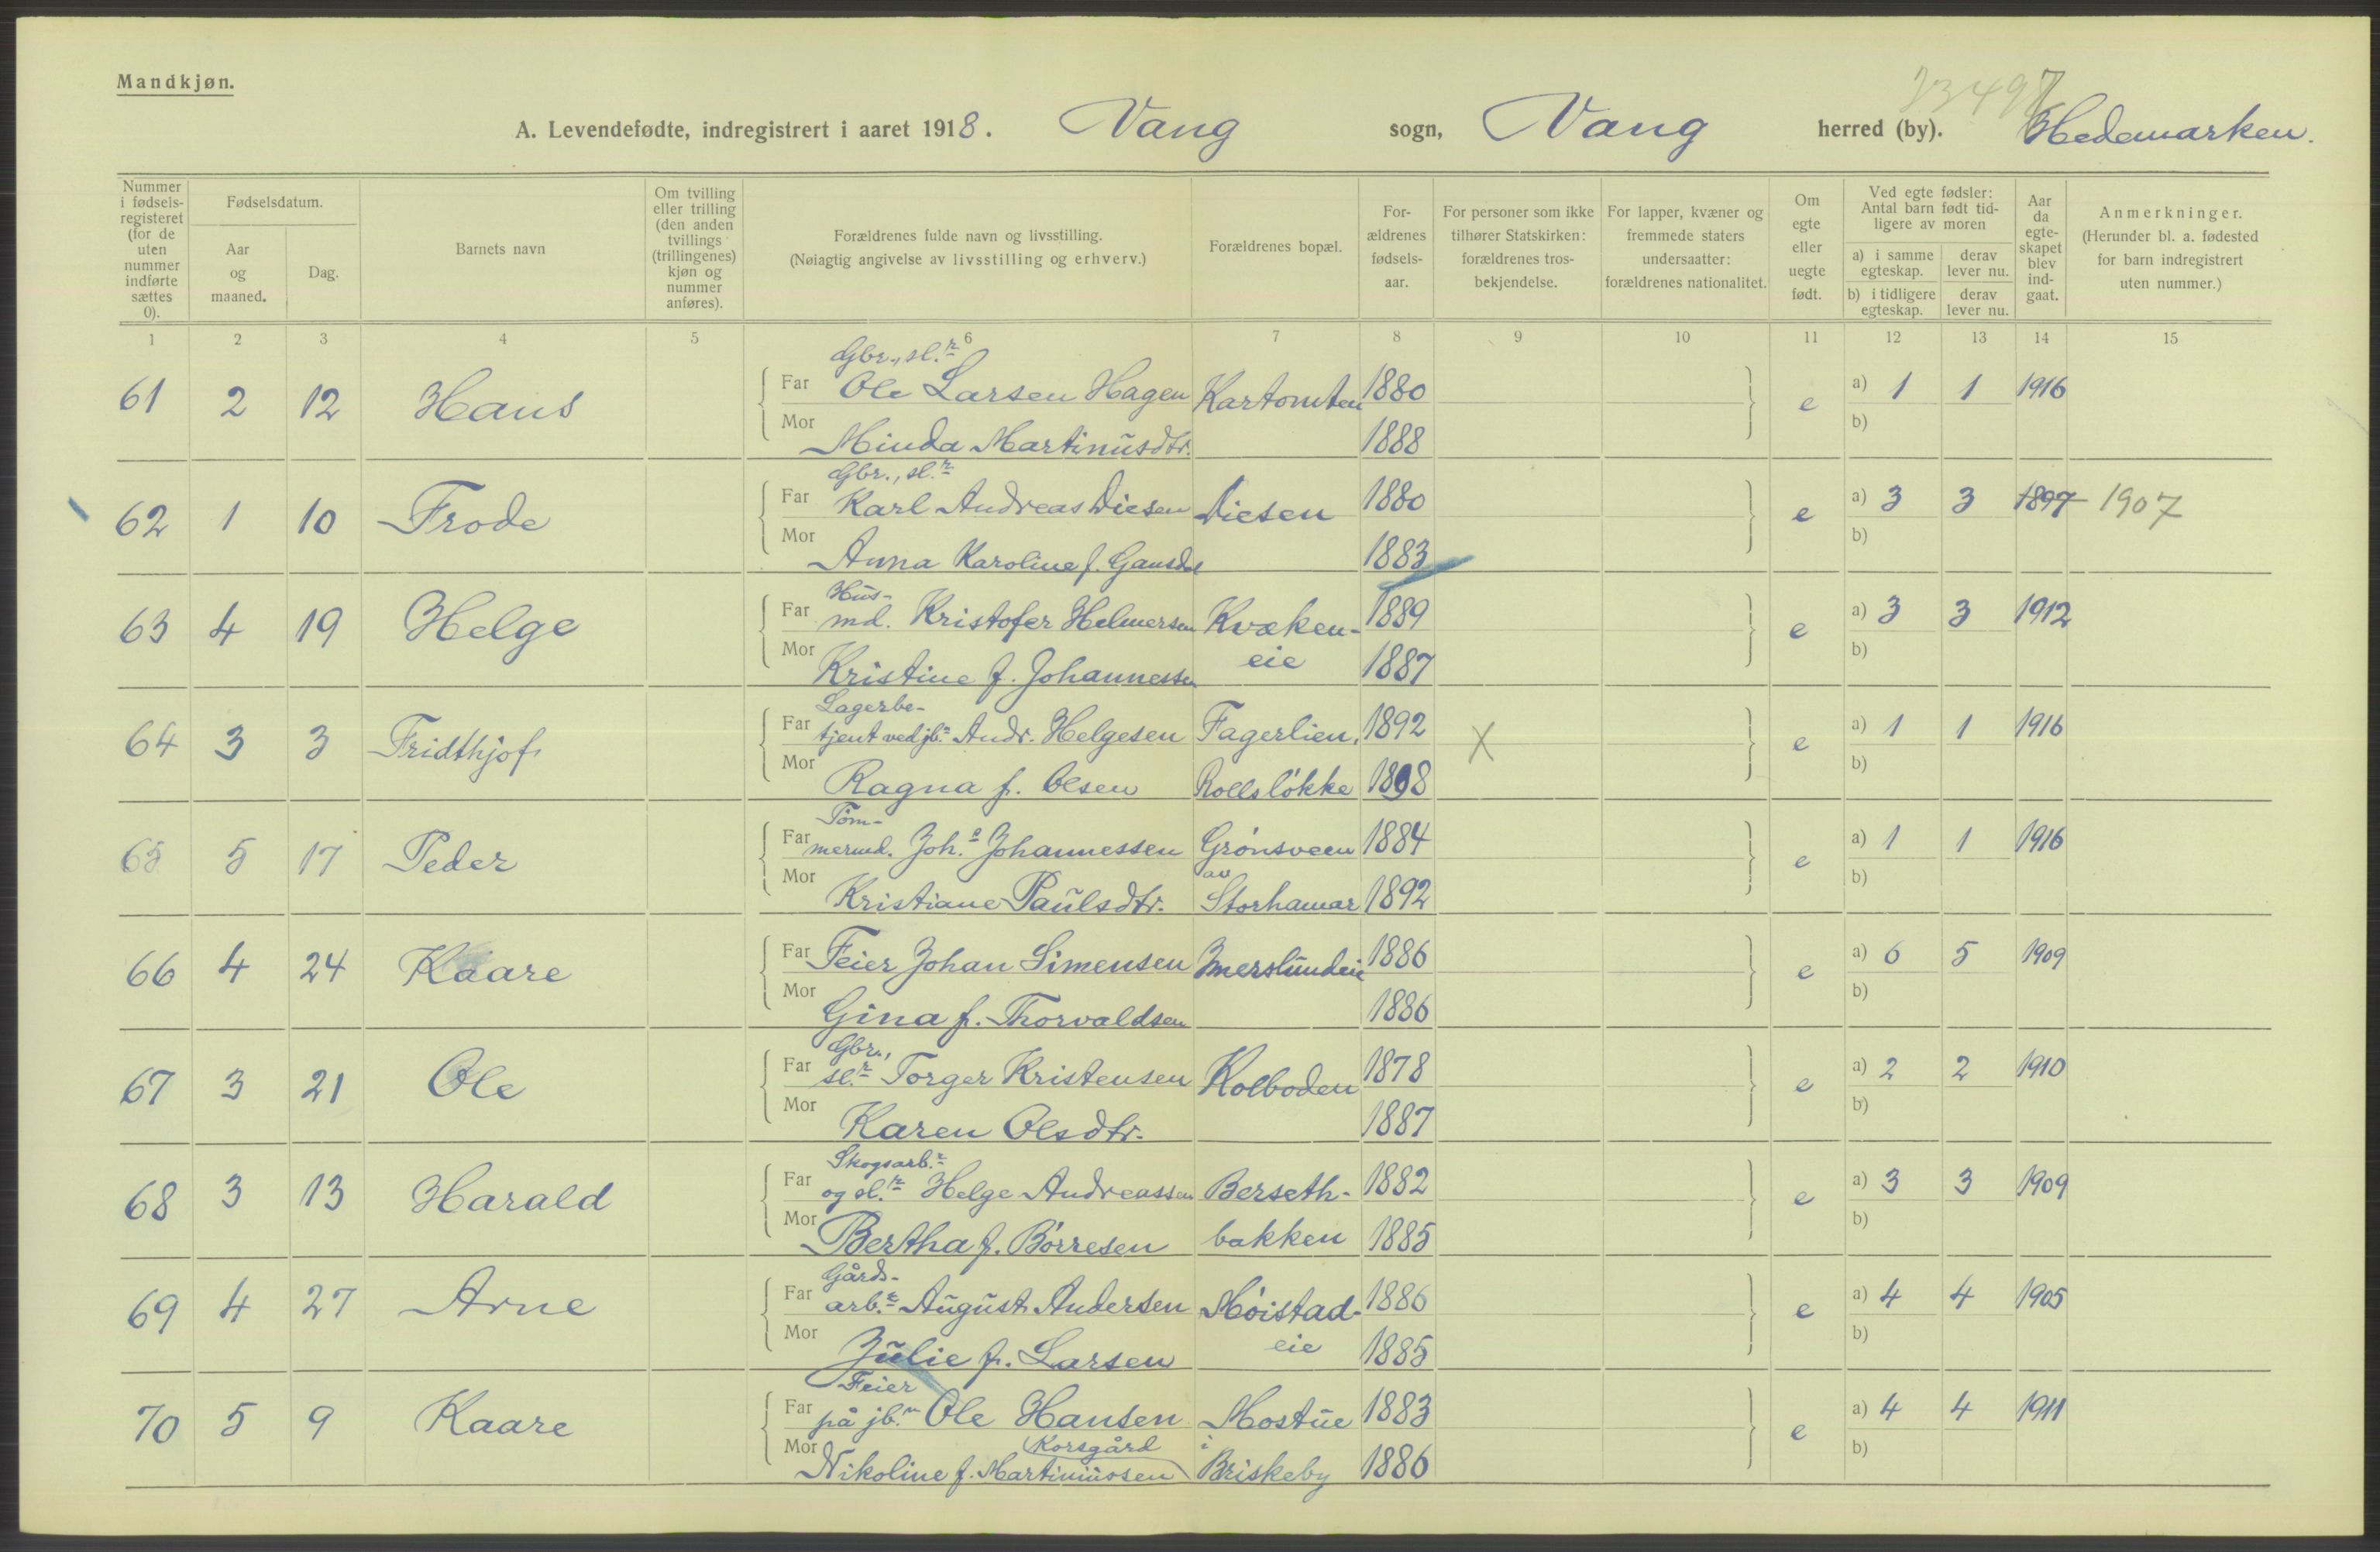 Mandkjøn.
23497
A. Levendefødte, indregistrert i aaret 1918. Vang sogn, Vang herred (by). Hedemarken.
Nummer i fødsels-registeret (for de uten nummer indførte sættes 0).
Fødselsdatum.
Aar og maaned.
Dag.
Barnets navn
Om tvilling eller trilling (den anden tvillings (trillingenes) kjøn og nummer anføres).
Forældrenes fulde navn og livsstilling.
(Nøiagtig angivelse av livsstilling og erhverv.)
Forældrenes bopæl.
For-ældrenes fødsels-aar.
For personer som ikke tilhører Statskirken: forældrenes tros-bekjendelse.
For lapper, kvæner og fremmede staters undersaatter: forældrenes nationalitet.
Om egte eller uegte født.
Ved egte fødsler: Antal barn født tid-ligere av moren
a) i samme egteskap.
derav lever nu.
b) i tidligere egteskap.
derav lever nu.
Aar da egte-skapet blev ind-gaat.
Anmerkninger.
(Herunder bl. a. fødested for barn indregistrert uten nummer.)
1 2 3 4 5 6 7 8 9 10 11 12 13 14 15
Gbr., sl.r
61 2 12 Hans Far Ole Larsen Hagen Kartomten 1880 e a) 1 1 1916
Mor Minda Martinusdtr. 1888 b)
Gbr., sl.r
62 1 10 Frode Far Karl Andreas Diesen Diesen 1880 e a) 3 3 1897 1907
Mor Anna Karoline f. 1883 b)
Hus-
63 4 19 Helge Far md. Kristofer Helmersen Kvæken- 1889 e a) 3 3 1912
Mor Kristine f. Johannessen eie 1887 b)
Lagerbe-
64 3 3 Fridthjof Far tjent ved jb.n Andr. Helgesen Fagerlien, 1892 X e a) 1 1 1916
Mor Ragna f. Olsen Rollsløkke 1898 b)
Tøm-
65 5 17 Peder Far mermd. Joh.s Johannessen Grønsveen 1884 e a) 1 1 1916
Mor Kristiane Paulsdtr. av Storhamar 1892 b)
66 4 24 Kaare Far Feier Johan Simensen Imerslundeie 1886 e a) 6 5 1909
Mor Gina f. Thorvaldsen 1886 b)
Gbr.,
67 3 21 Ole Far sl.r Torger Kristensen Kolboden 1878 e a) 2 2 1910
Mor Karen Olsdtr. 1887 b)
Skogsarb.r
68 3 13 Harald Far og sl.r Helge Andreassen Berseth- 1882 e a) 3 3 1909
Mor Bertha f. Børresen bakken 1885 b)
Gårds-
69 4 27 Arne Far arb.r August Andersen Møistad- 1886 e a) 4 4 1905
Mor Julie f. Larsen eie 1885 b)
Feier
70 5 9 Kaare Far på jb.n Ole Hansen Mostue 1883 e a) 4 4 1911
Korsgård i
Mor Nikoline f. Martiniussen Briskeby 1886 b)